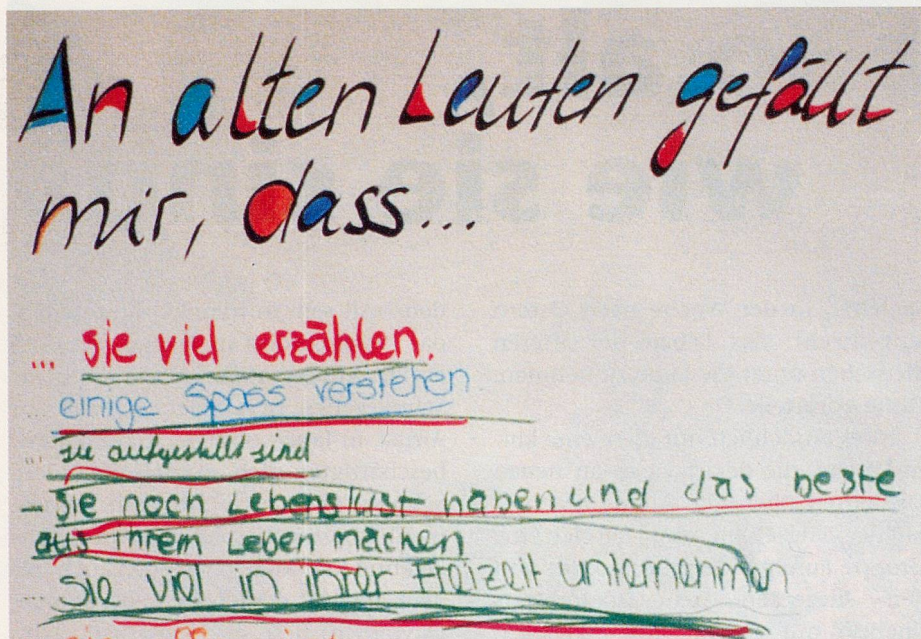 An alten Leuten gefällt
mir, dass...
... sie viel erzählen.
einige Spass verstehen
... sie aufgestellt sind
- sie noch Lebenslust haben und das beste
aus ihrem Leben machen
... sie viel in ihrer Freizeit unternehmen